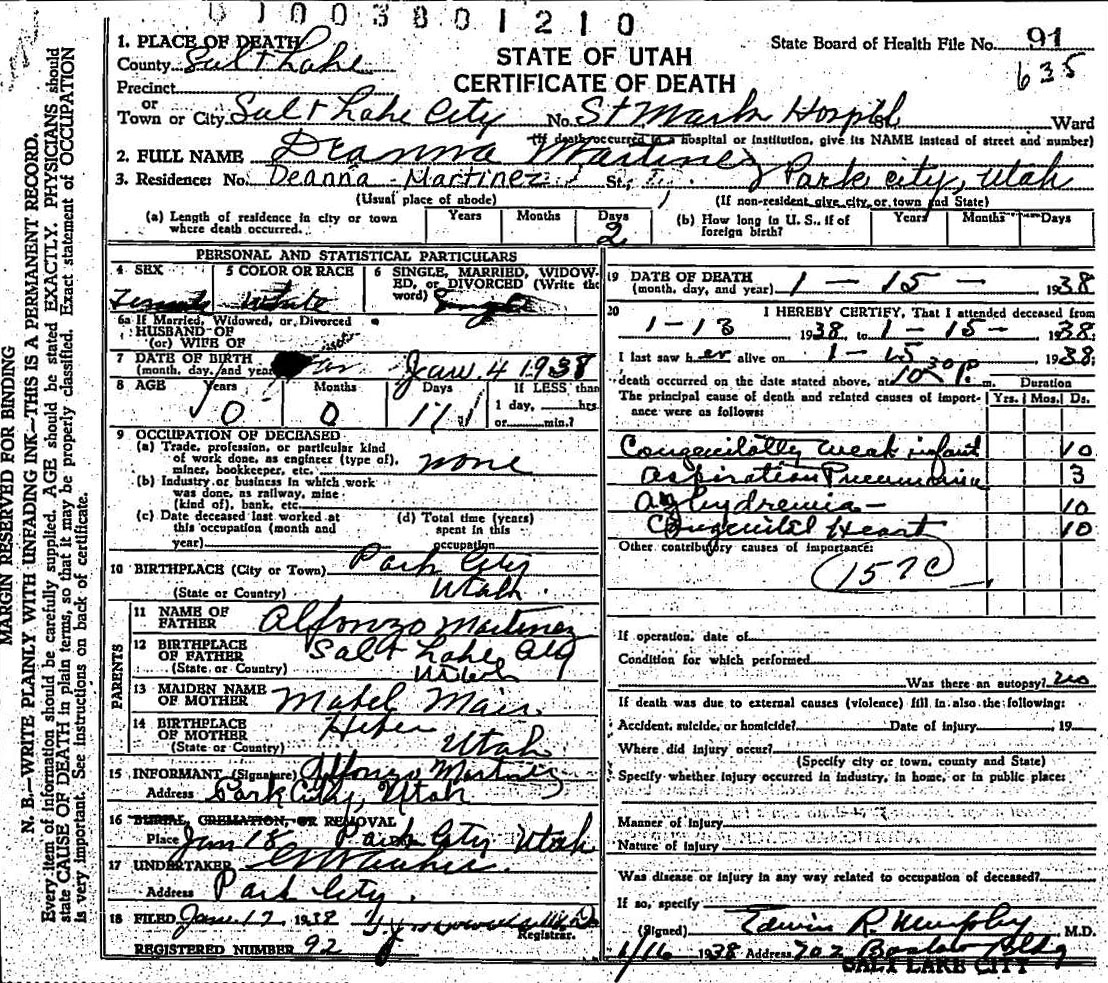 0 1 0 0 3 8 0 1 2 1 0
MARGIN RESERVED FOR BINDING
N. B.—WRITE PLAINLY WITH UNFADING INK—THIS IS A PERMANENT RECORD.
Every item of information should be carefully supplied. AGE should be stated EXACTLY. PHYSICIANS should
state CAUSE OF DEATH in plain terms, so that it may be properly classified. Exact statement of OCCUPATION
is very important. See instructions on back of certificate.
STATE OF UTAH
CERTIFICATE OF DEATH
State Board of Health File No. 91
635
1. PLACE OF DEATH
County Salt Lake
Precinct
or
Town or City Salt Lake City No. St Mark Hospitl St. Ward
(If death occurred in a hospital or institution, give its NAME instead of street and number)
2. FULL NAME Deanna Martinez
3. Residence: No. Deanna Martinez St., Park City, Utah
(Usual place of abode) (If non-resident give city or town and State)
(a) Length of residence in city or town where death occurred. Years Months Days 2
(b) How long in U. S., if of foreign birth? Years Months Days
PERSONAL AND STATISTICAL PARTICULARS
4 SEX Female
5 COLOR OR RACE White
6 SINGLE, MARRIED, WIDOWED, or DIVORCED (Write the word) Single
6a If Married, Widowed, or Divorced
HUSBAND OF
(or) WIFE OF
7 DATE OF BIRTH (month, day, and year) Jan. 4 1938
8 AGE Years 0 Months 0 Days 11 If LESS than 1 day, hrs. or min.?
9 OCCUPATION OF DECEASED
(a) Trade, profession, or particular kind of work done, as engineer (type of), miner, bookkeeper, etc. none
(b) Industry or business in which work was done, as railway, mine (kind of), bank, etc.
(c) Date deceased last worked at this occupation (month and year)
(d) Total time (years) spent in this occupation
10 BIRTHPLACE (City or Town) Park City
(State or Country) Utah
PARENTS
11 NAME OF FATHER Alfonzo Martinez
12 BIRTHPLACE OF FATHER Salt Lake City
(State or Country) Utah
13 MAIDEN NAME OF MOTHER Mabel Mair
14 BIRTHPLACE OF MOTHER Heber
(State or Country) Utah
15 INFORMANT (Signature) Alfonzo Martinez
Address Park City, Utah
16 BURIAL, CREMATION, OR REMOVAL
Place Jan 18 Park City Utah
17 UNDERTAKER
Address Park City
18 FILED Jan. 17 1938
Registrar.
REGISTERED NUMBER 92
19 DATE OF DEATH (month, day, and year) 1 - 15 - 1938
20 I HEREBY CERTIFY, That I attended deceased from
1-13 1938, to 1-15- 1938.
I last saw her alive on 1-15 1938.
death occurred on the date stated above, at 10 30 P. m. Duration
The principal cause of death and related causes of importance were as follows: Yrs. Mos. Ds.
Congenitally weak infant 10
Aspiration Pneumonia 3
Anhydremia - 10
Congenital Heart 10
Other contributory causes of importance:
157C
If operation, date of
Condition for which performed
Was there an autopsy? no
If death was due to external causes (violence) fill in also the following:
Accident, suicide, or homicide? Date of injury 19
Where did injury occur?
(Specify city or town, county and State)
Specify whether injury occurred in industry, in home, or in public place:
Manner of Injury
Nature of Injury
Was disease or injury in any way related to occupation of deceased?
If so, specify
(Signed) Edwin R. Murphy M.D.
1/16 1938 Address 702 Boston Bldg
SALT LAKE CITY